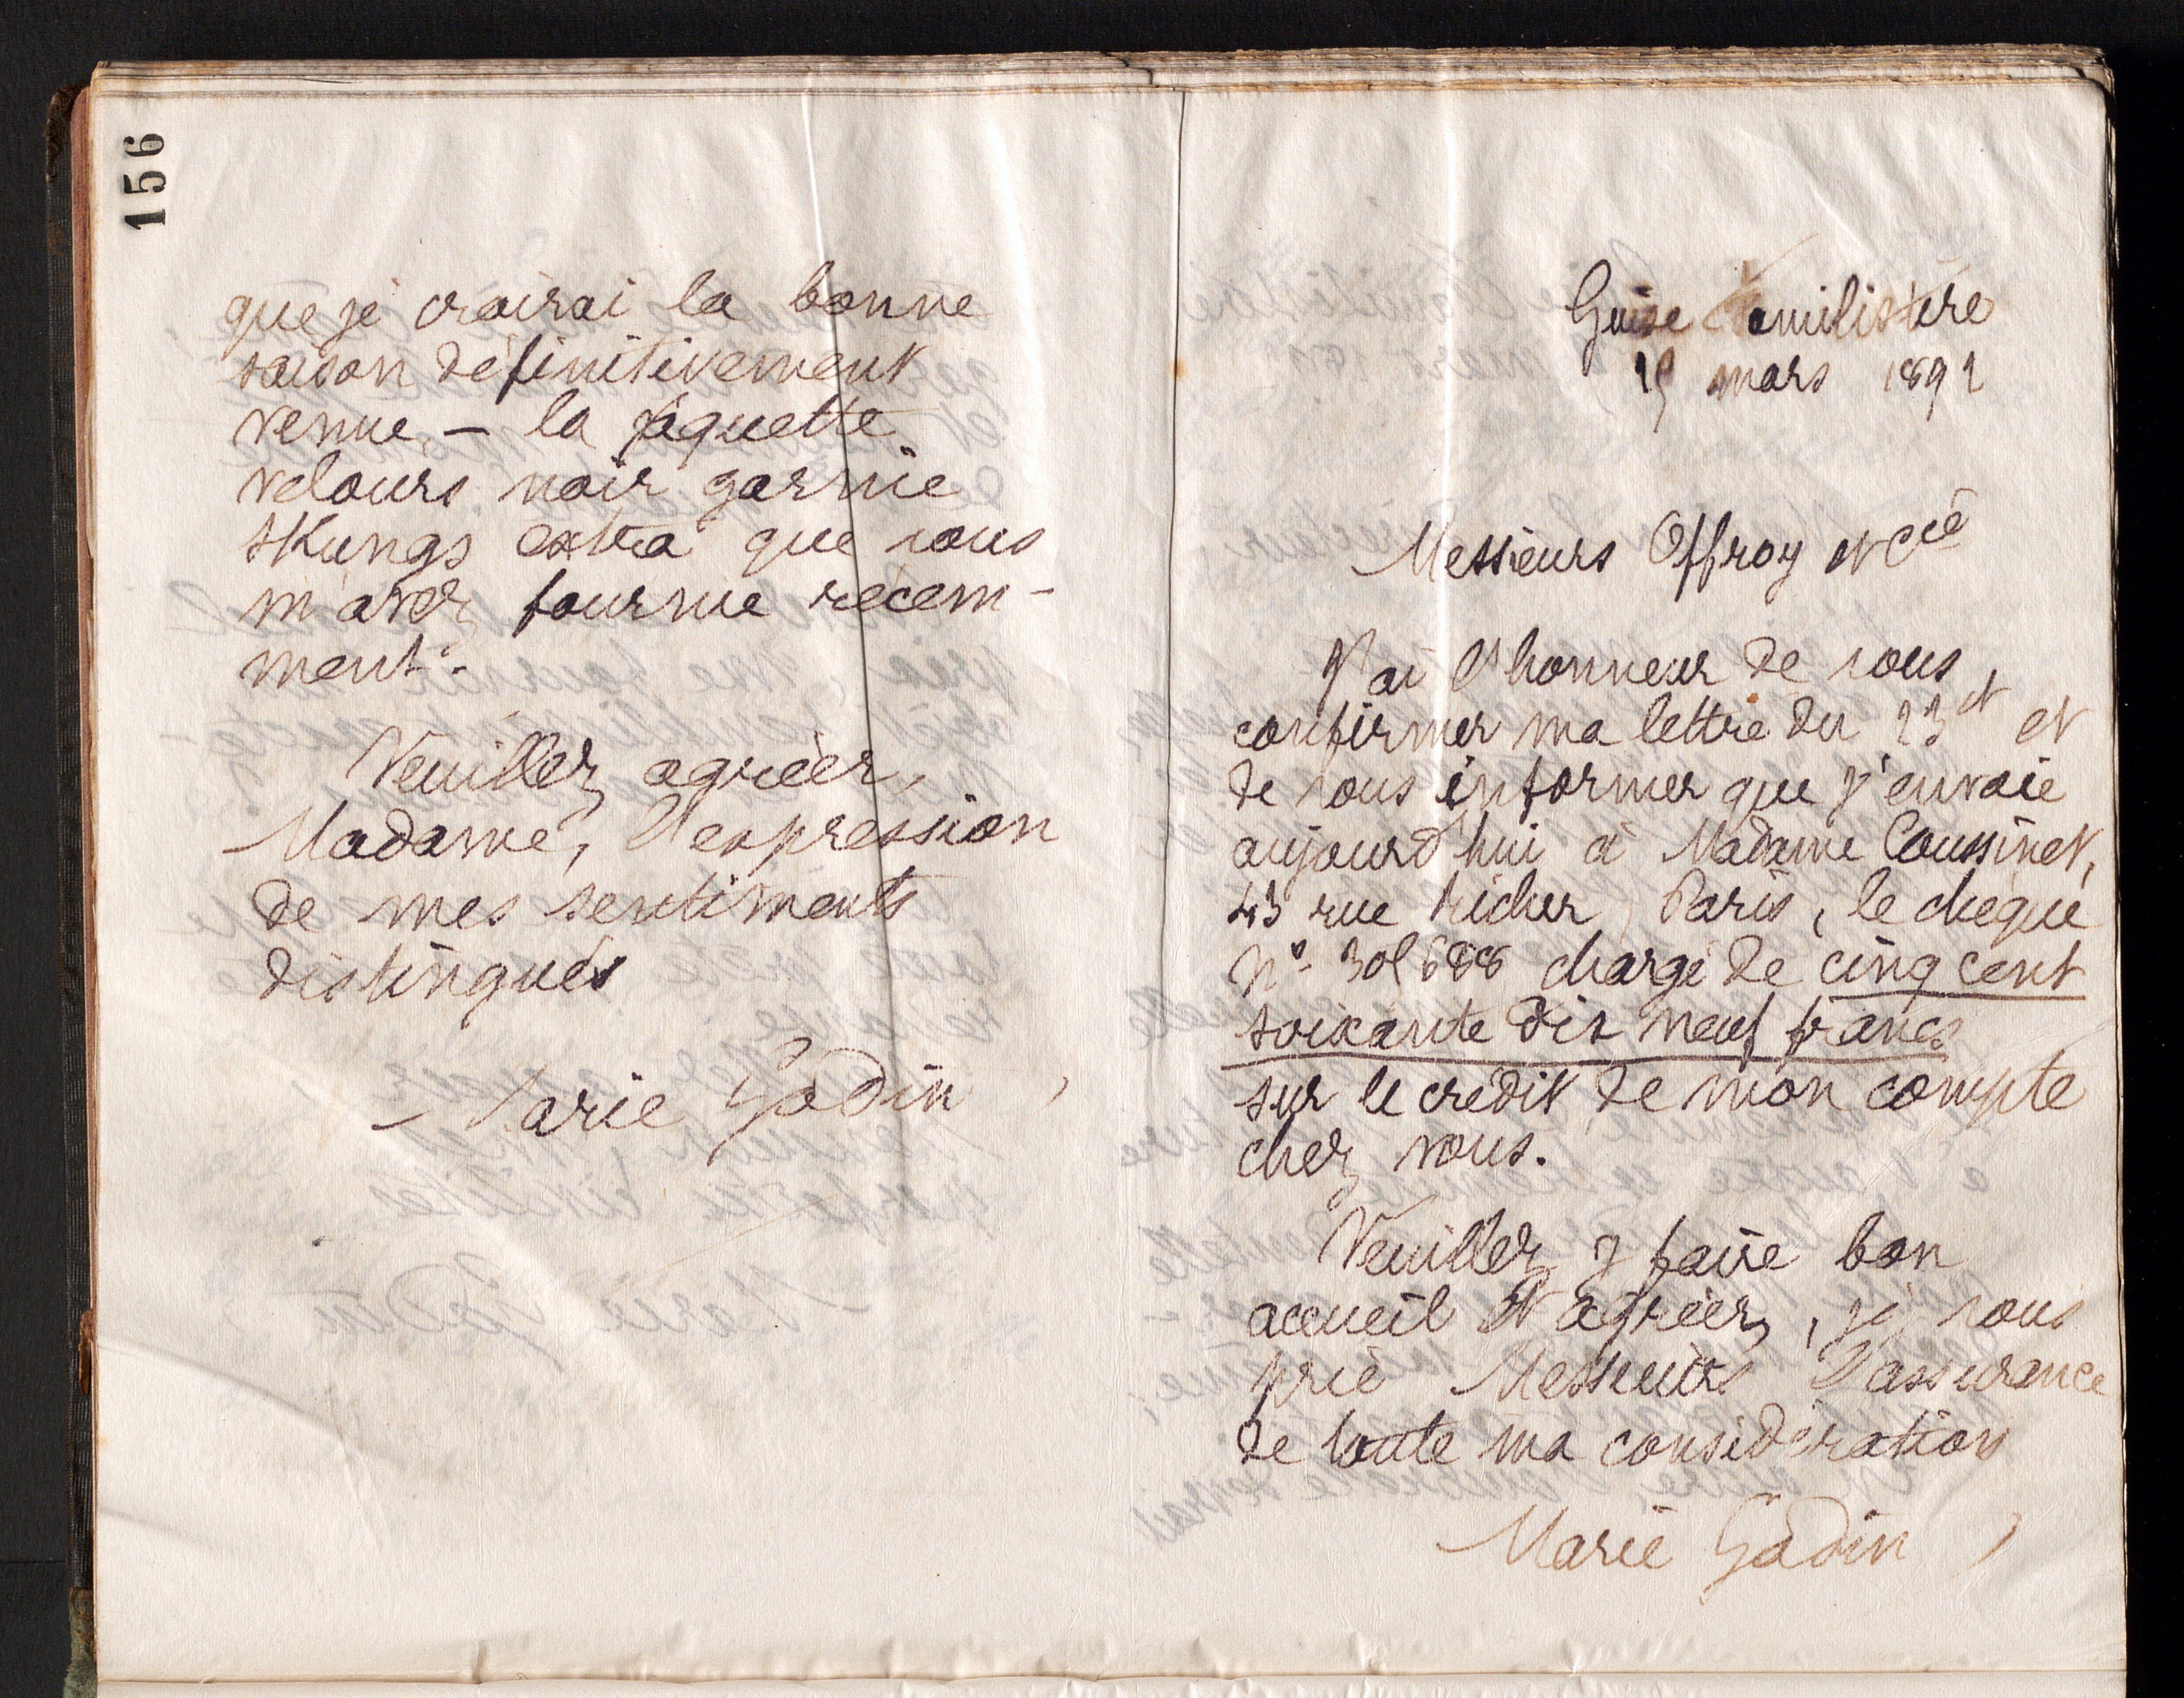 156
que je croirai la bonne
saison définitivement
venue, – la jaquette
velours noir garnie
skungs extra que vous
m'avez fournie récem-
ment.
Veuillez agréer,
Madame, l'expression
de mes sentiments
distingués
Marie Godin
Guise Familistère
mars 1892
Messieurs Offroy et Cie
J'ai l'honneur de vous
confirmer ma lettre du 23 ct et
de vous informer que j'envoie
aujourd'hui à Madame Coussinet,
43 rue Richer, Paris, le chèque
No chargé de cinq cent
soixante dix neuf francs
sur le crédit de mon compte
chez vous.
Veuillez y faire bon
accueil et agréer, je vous
prie Messieurs l'assurance
de toute ma considération
Marie Godin